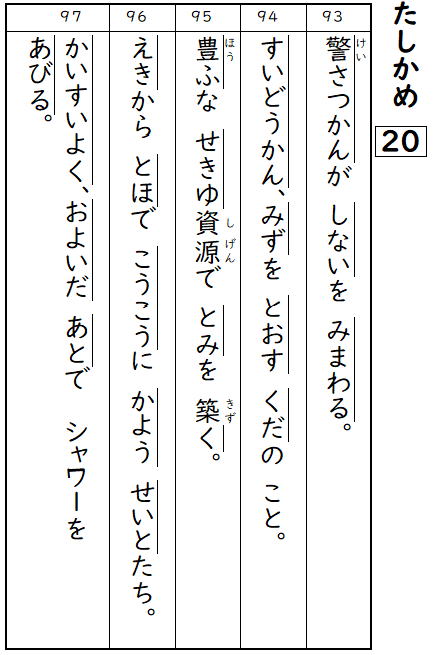 たしかめ
20
93
警さつかんが しないを みまわる。
けい
94
すいどうかん、みずを とおす くだの こと。
95
豊ふな せきゆ資源で とみを 築く。
ほう
し げん
きず
96
えきから とほで こうこうに かよう せいとたち。
97
かいすいよく、およいだ あとで シャワーを
あびる。